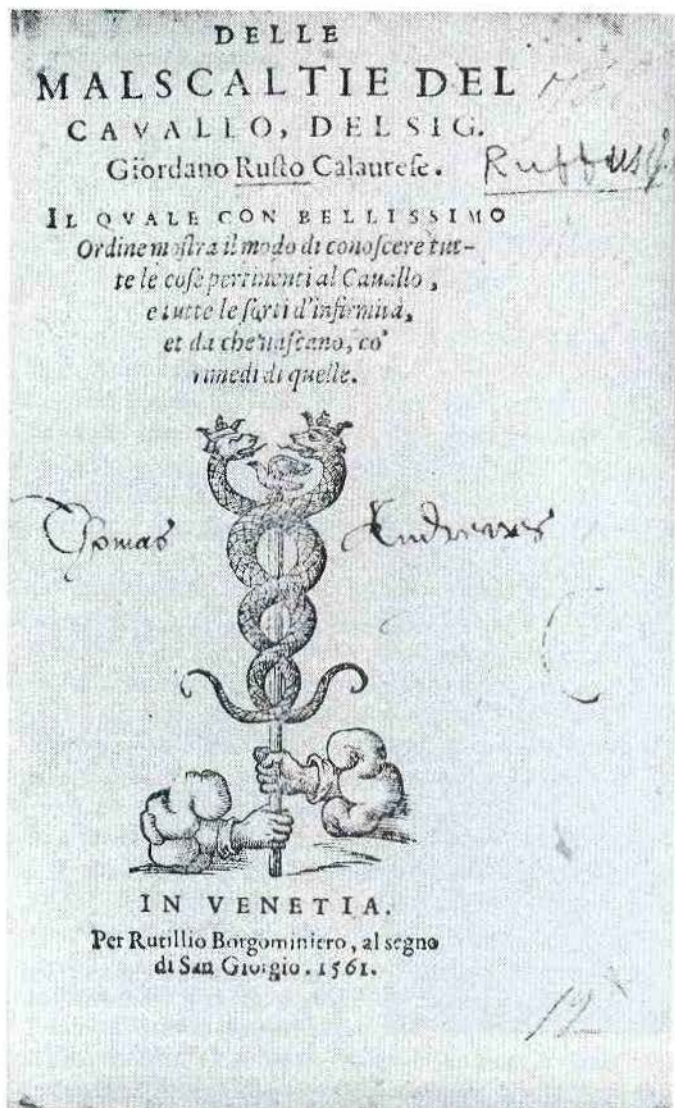 DELLE
MALSCALTIE DEL
CAVALLO, DEL SIG.
Giordano Rusto Calaurese.
Ruffus
IL QVALE CON BELLISSIMO
Ordine mostra il modo di conoscere tut-
te le cose pertinenti al Cauallo,
e tutte le sorti d'infirmità,
et da che nascano, co'
rimedi di quelle.
Thomas Andrewes
IN VENETIA.
Per Rutillio Borgominiero, al segno
di San Giorgio. 1561.